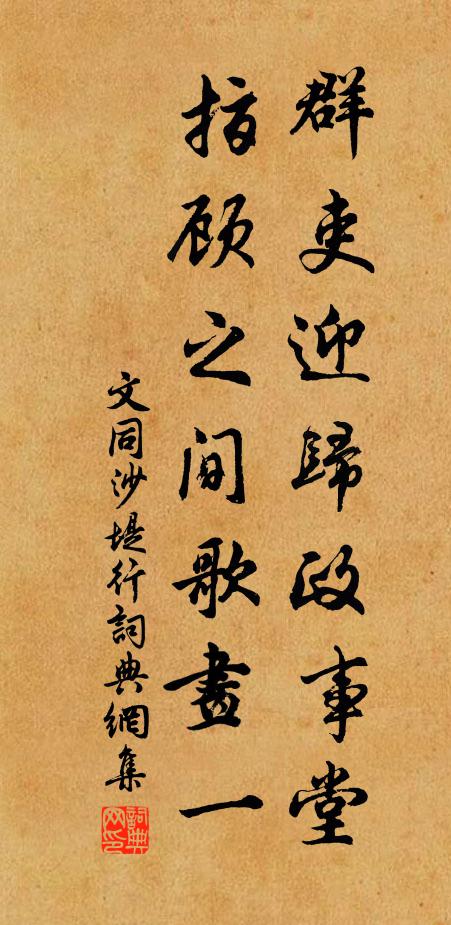 群吏迎歸政事堂
指顾之间歌畫一
文同沙堤行詞典網集
詞典网印